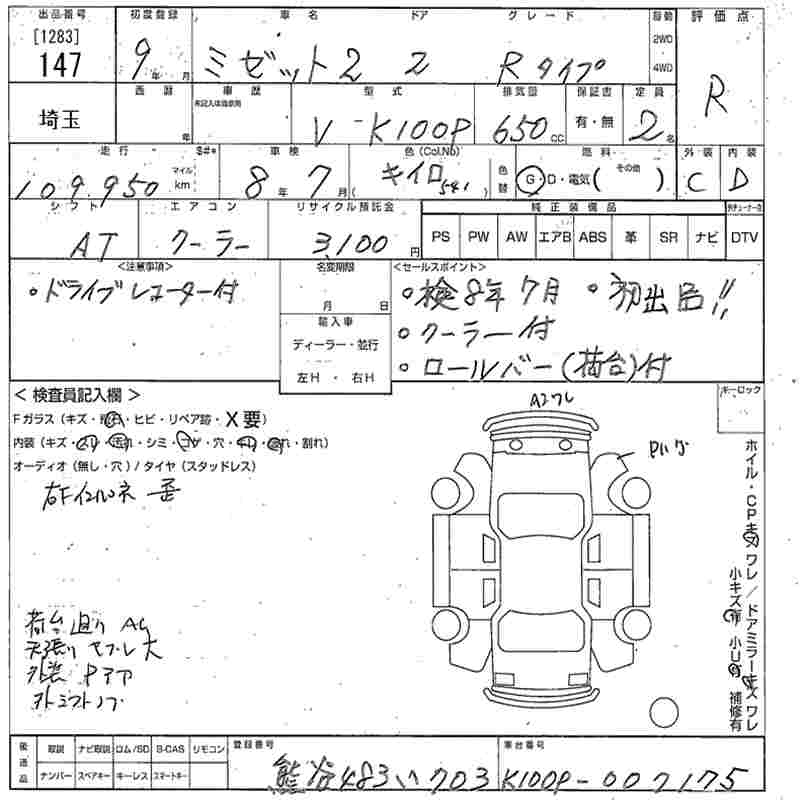 出品番号 初度登録 車名 ドア グレード 駆動 評価点
[1283]
147 9年 月 ミゼット2 2 Rタイプ 2WD 4WD R
埼玉 西暦 年 車歴 型式 排気量 保証書 定員
未記入は自家用
V-K100P 650cc 有・無 2名
走行 車検 色(Col.No) 色替 燃料 外装 内装
109,950 マイル km 8年7月 キイロ 541 G・D・電気( その他 ) C D
シフト エアコン リサイクル預託金 純正装備品
AT クーラー 3,100円 PS PW AW エアB ABS 革 SR ナビ DTV
<注意事項> 名変期限 <セールスポイント>
・ドライブレコーダー付 月 日 ・検8年7月 ・初出品!!
輸入車 ・クーラー付
ディーラー・並行
左H ・ 右H ・ロールバー(荷台)付
< 検査員記入欄 > キーロック
Fガラス(キズ・飛A・ヒビ・リペア跡・X要)
内装(キズ・スリ・汚れ・シミ・コゲ・穴・切れ・割れ)
オーディオ(無し・穴)/タイヤ(スタッドレス)
A2ワレ
ホイル・CPキズ ワレ/ドアミラーキズ ワレ
小キズ有 小U有 補修有
荷台廻り AC
外装 Pアア
後送品 取説 ナビ取説 ロム/SD B-CAS リモコン 登録番号 車台番号
ナンバー スペアキー キーレス スマートキー
熊谷483い703 K100P-007175